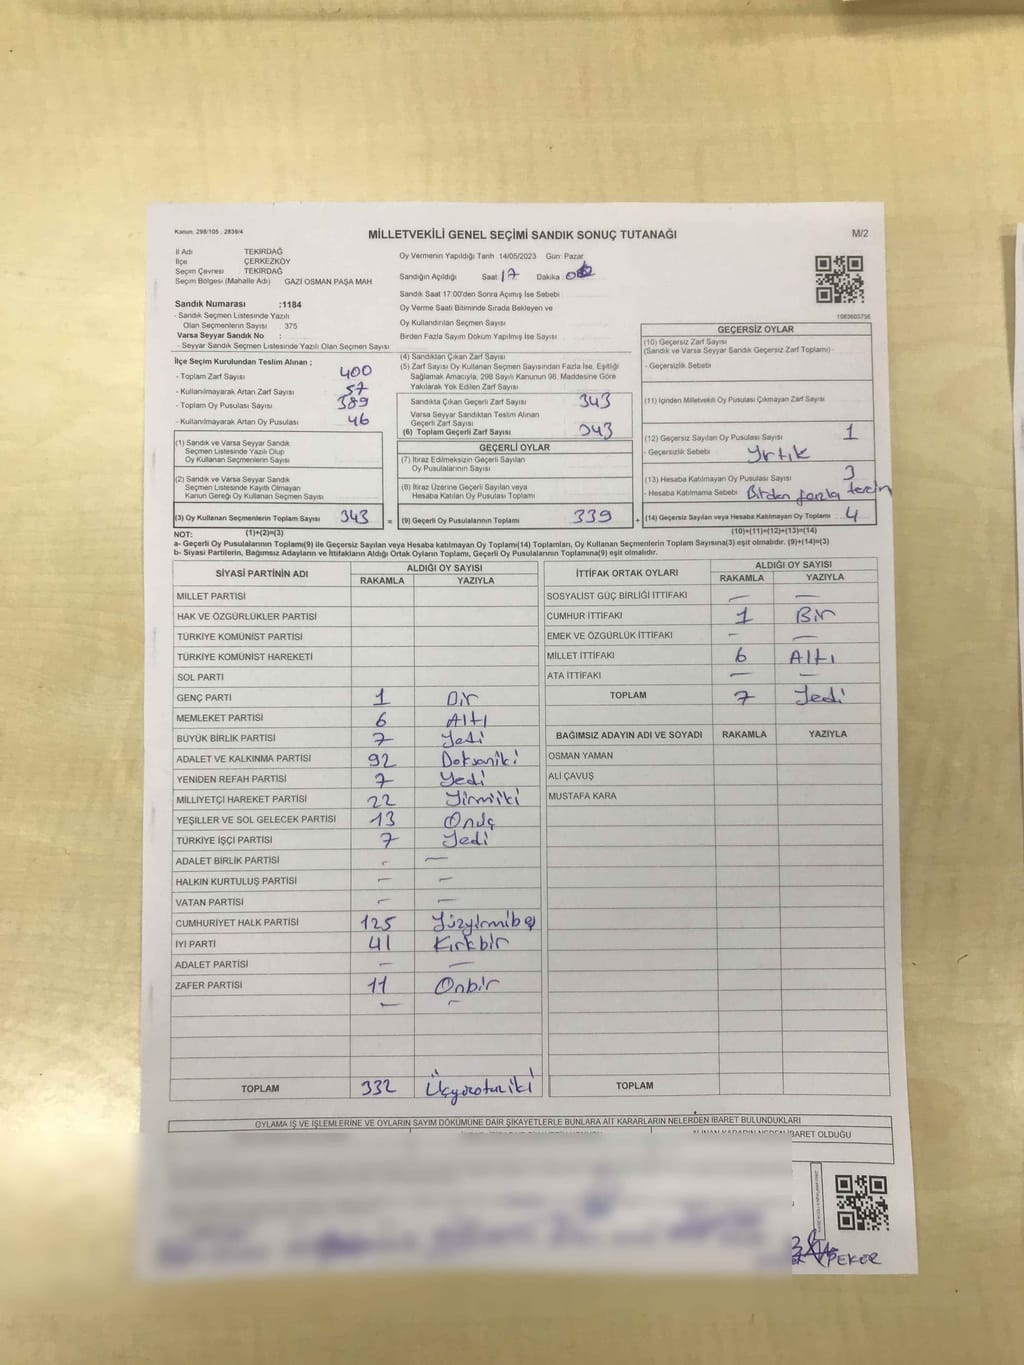 Kanun: 298/105 , 2839/4
MİLLETVEKİLİ GENEL SEÇİMİ SANDIK SONUÇ TUTANAĞI
M/2
İl Adı TEKİRDAĞ
İlçe ÇERKEZKÖY
Seçim Çevresi TEKİRDAĞ
Seçim Bölgesi (Mahalle Adı) GAZİ OSMAN PAŞA MAH
Sandık Numarası :1184
- Sandık Seçmen Listesinde Yazılı
Olan Seçmenlerin Sayısı 375
Varsa Seyyar Sandık No :
- Seyyar Sandık Seçmen Listesinde Yazılı Olan Seçmen Sayısı
Oy Vermenin Yapıldığı Tarih 14/05/2023 Gün: Pazar
Sandığın Açıldığı Saat 17 Dakika
Sandık Saat 17:00'den Sonra Açılmış İse Sebebi
Oy Verme Saati Bitiminde Sırada Bekleyen ve
Oy Kullandırılan Seçmen Sayısı
Birden Fazla Sayım Döküm Yapılmış İse Sayısı
1083603756
İlçe Seçim Kurulundan Teslim Alınan ;
- Toplam Zarf Sayısı 400
- Kullanılmayarak Artan Zarf Sayısı 57
- Toplam Oy Pusulası Sayısı 389
- Kullanılmayarak Artan Oy Pusulası 46
(1) Sandık ve Varsa Seyyar Sandık
Seçmen Listesinde Yazılı Olup
Oy Kullanan Seçmenlerin Sayısı
(2) Sandık ve Varsa Seyyar Sandık
Seçmen Listesinde Kayıtlı Olmayan
Kanun Gereği Oy Kullanan Seçmen Sayısı
(3) Oy Kullanan Seçmenlerin Toplam Sayısı 343 =
(1)+(2)=(3)
(4) Sandıktan Çıkan Zarf Sayısı
(5) Zarf Sayısı Oy Kullanan Seçmen Sayısından Fazla İse, Eşitliği
Sağlamak Amacıyla, 298 Sayılı Kanunun 98. Maddesine Göre
Yakılarak Yok Edilen Zarf Sayısı
Sandıkta Çıkan Geçerli Zarf Sayısı 343
Varsa Seyyar Sandıktan Teslim Alınan
Geçerli Zarf Sayısı
(6) Toplam Geçerli Zarf Sayısı 343
GEÇERLİ OYLAR
(7) İtiraz Edilmeksizin Geçerli Sayılan
Oy Pusulalarının Sayısı
(8) İtiraz Üzerine Geçerli Sayılan veya
Hesaba Katılan Oy Pusulası Toplamı
(9) Geçerli Oy Pusulalarının Toplamı 339 +
GEÇERSİZ OYLAR
(10) Geçersiz Zarf Sayısı
(Sandık ve Varsa Seyyar Sandık Geçersiz Zarf Toplamı)
- Geçersizlik Sebebi
(11) İçinden Milletvekili Oy Pusulası Çıkmayan Zarf Sayısı
(12) Geçersiz Sayılan Oy Pusulası Sayısı 1
- Geçersizlik Sebebi Yırtık
(13) Hesaba Katılmayan Oy Pusulası Sayısı 3
- Hesaba Katılmama Sebebi Birden fazla tercih
(14) Geçersiz Sayılan veya Hesaba Katılmayan Oy Toplamı : 4
(10)+(11)+(12)+(13)=(14)
NOT:
a- Geçerli Oy Pusulalarının Toplamı(9) ile Geçersiz Sayılan veya Hesaba Katılmayan Oy Toplamı(14) Toplamları, Oy Kullanan Seçmenlerin Toplam Sayısına(3) eşit olmalıdır. (9)+(14)=(3)
b- Siyasi Partilerin, Bağımsız Adayların ve İttifakların Aldığı Ortak Oyların Toplamı, Geçerli Oy Pusulalarının Toplamına(9) eşit olmalıdır.
SİYASİ PARTİNİN ADI ALDIĞI OY SAYISI
RAKAMLA YAZIYLA
MİLLET PARTİSİ
HAK VE ÖZGÜRLÜKLER PARTİSİ
TÜRKİYE KOMÜNİST PARTİSİ
TÜRKİYE KOMÜNİST HAREKETİ
SOL PARTİ
GENÇ PARTİ 1 Bir
MEMLEKET PARTİSİ 6 Altı
BÜYÜK BİRLİK PARTİSİ 7 Yedi
ADALET VE KALKINMA PARTİSİ 92 Doksaniki
YENİDEN REFAH PARTİSİ 7 Yedi
MİLLİYETÇİ HAREKET PARTİSİ 22 Yirmiiki
YEŞİLLER VE SOL GELECEK PARTİSİ 13 Onüç
TÜRKİYE İŞÇİ PARTİSİ 7 Yedi
ADALET BİRLİK PARTİSİ - -
HALKIN KURTULUŞ PARTİSİ - -
VATAN PARTİSİ - -
CUMHURİYET HALK PARTİSİ 125 Yüzyirmibeş
İYİ PARTİ 41 Kırkbir
ADALET PARTİSİ - -
ZAFER PARTİSİ 11 Onbir
- -
TOPLAM 332 Üçyüzotuziki
İTTİFAK ORTAK OYLARI ALDIĞI OY SAYISI
RAKAMLA YAZIYLA
SOSYALİST GÜÇ BİRLİĞİ İTTİFAKI - -
CUMHUR İTTİFAKI 1 Bir
EMEK VE ÖZGÜRLÜK İTTİFAKI - -
MİLLET İTTİFAKI 6 Altı
ATA İTTİFAKI - -
TOPLAM 7 Yedi
BAĞIMSIZ ADAYIN ADI VE SOYADI RAKAMLA YAZIYLA
OSMAN YAMAN
ALİ ÇAVUŞ
MUSTAFA KARA
TOPLAM
OYLAMA İŞ VE İŞLEMLERİNE VE OYLARIN SAYIM DÖKÜMÜNE DAİR ŞİKAYETLERLE BUNLARA AİT KARARLARIN NELERDEN İBARET BULUNDUKLARI
İBARET OLDUĞU
PEKER